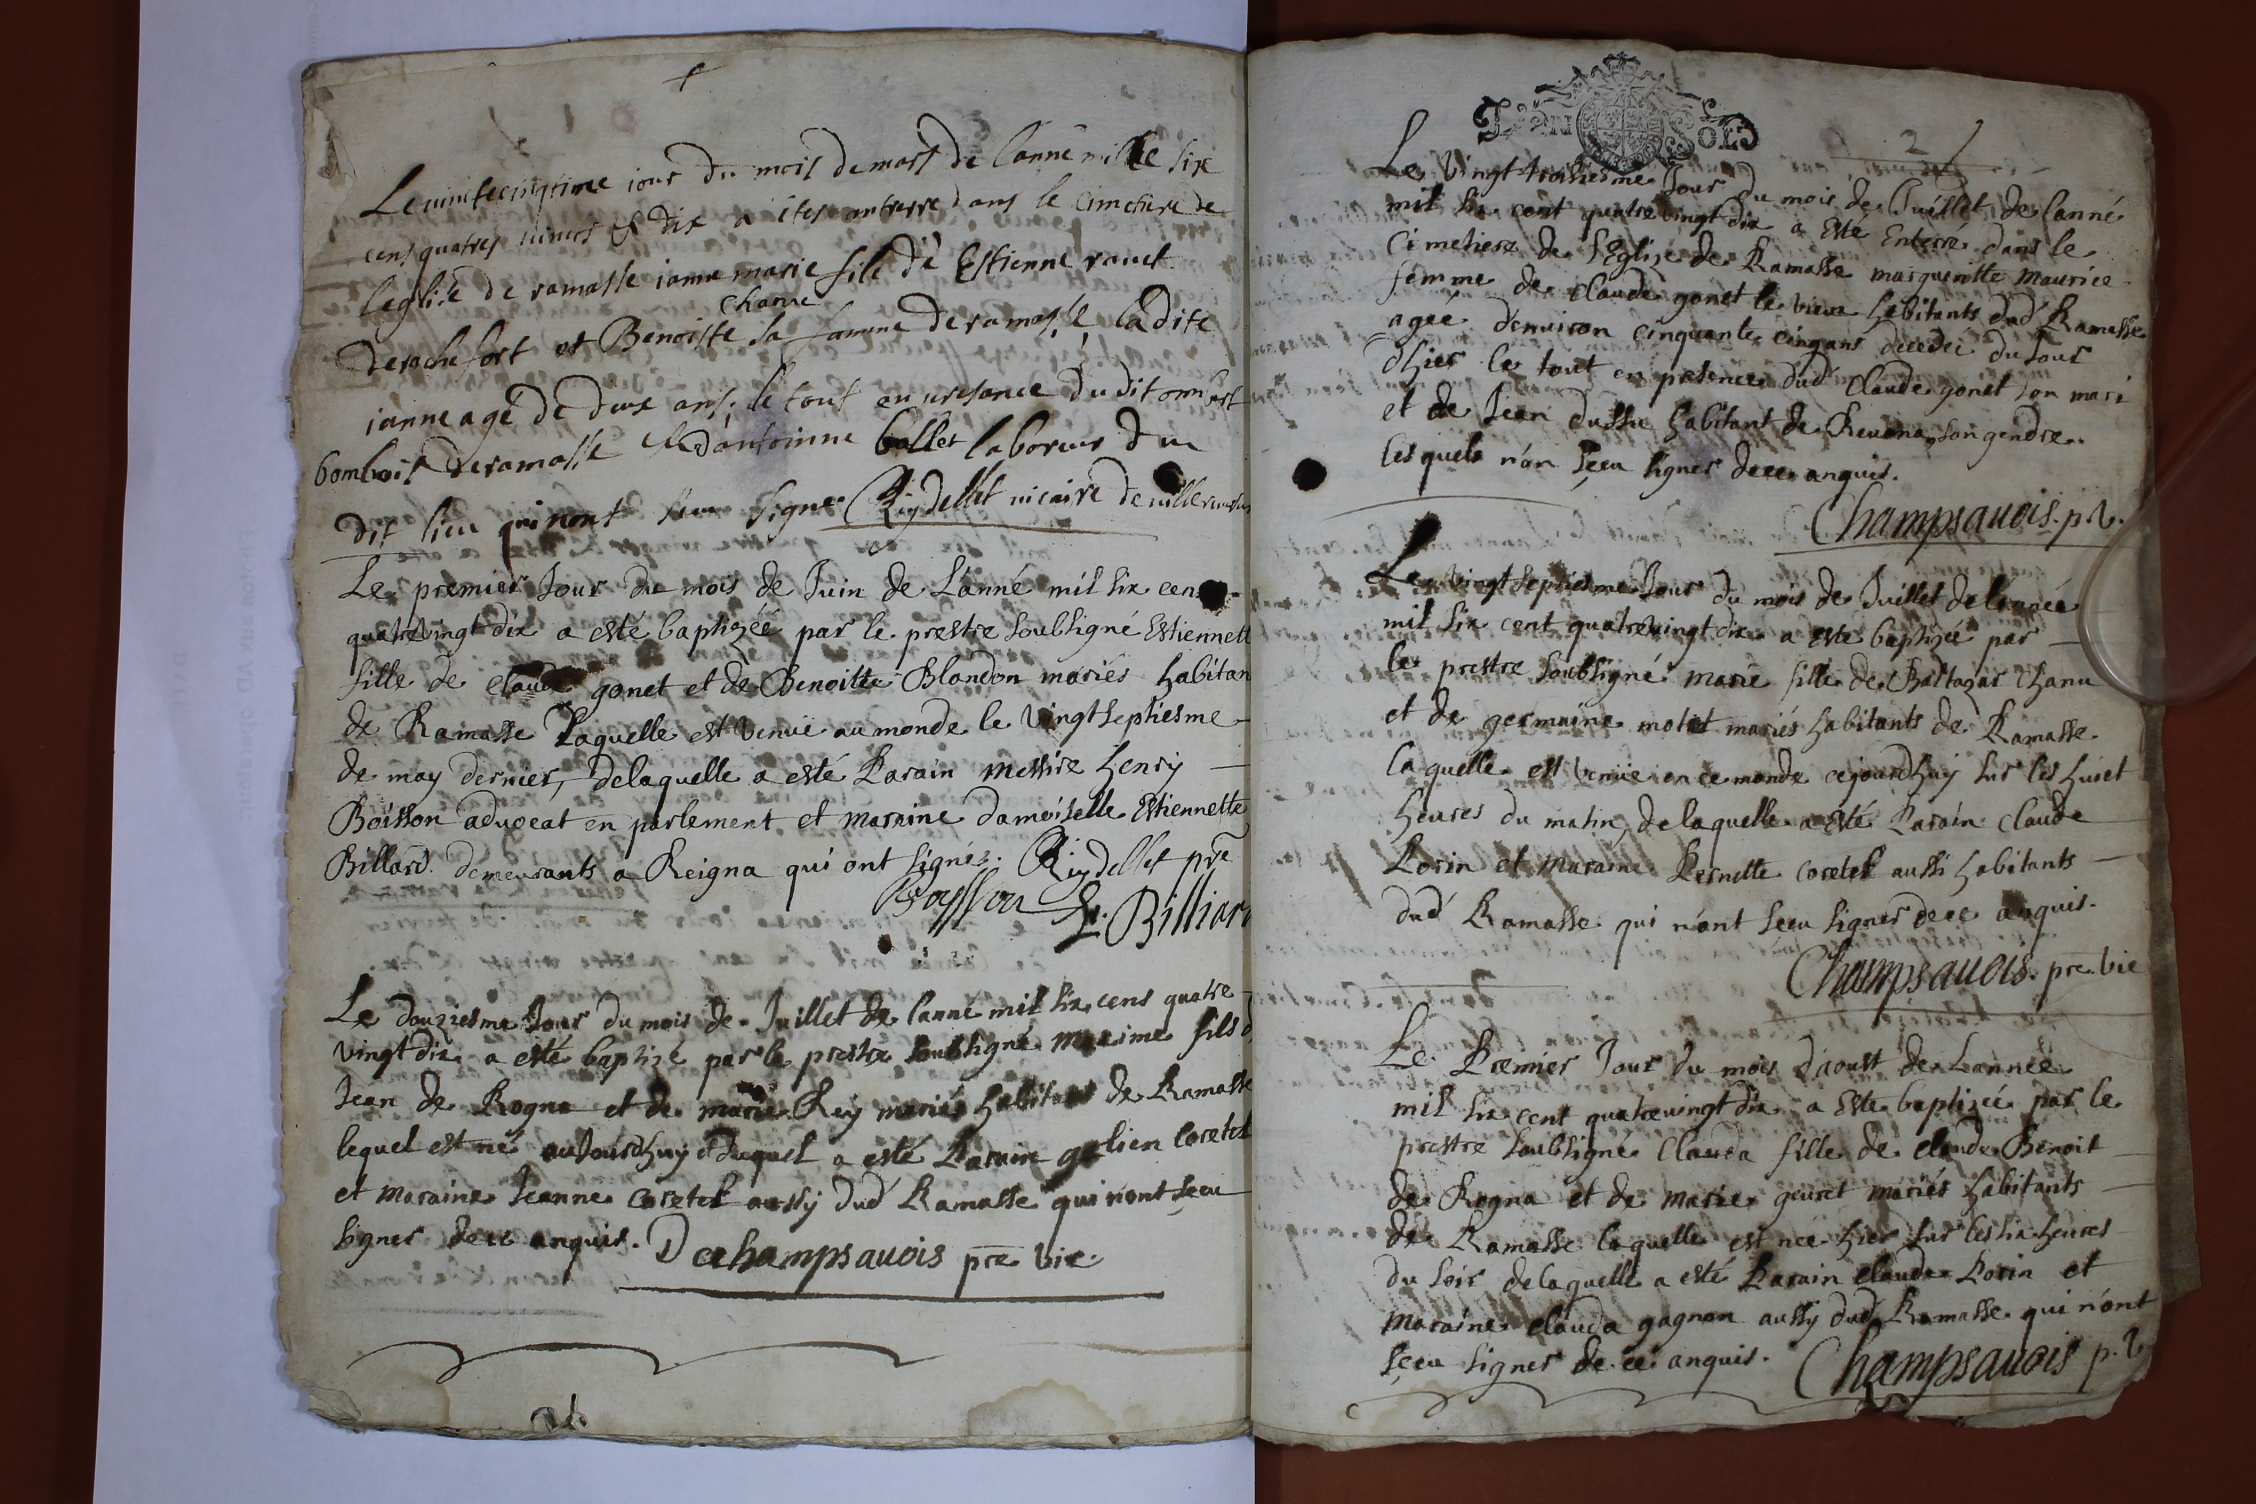 Le vinteciqtime iour du mois de mars de l'anne mille six
cens quatres vints & dix a etes anterre dans le cimetiere de
leglise de ramasse ianne marie file dè Estienne ravet
chanu
de rochefort et Benoiste sa famme de ramasse la dite
ianne agé de deux ans, le tout en presance du dit
bomboit de ramasse & d'antoinne ballet laboreur du
dit lieu qui nont sceu signé Reydellet vicaire de
Le premier Jour du mois de Juin de L'anné mil six cens
quatrevingt dix a esté baptizéé par le prestre soubsigné Estiennett
fille de claude gonet et de Benoitte Blondon mariés habitan
de Ramasse Laquelle est venuë au monde le vingt septiesme
de may dernier, de laquelle a esté Parain Messire henry
Boisson advocat en parlement et maraine damoiselle Estiennette
Billard demeurants a Reigna qui ont signéz. Reydellet pre
Boisson E. Billiard
Le douziesme Jour du mois de Juillet de l'anné mil six cens quatre
vingt dix a esté baptizé par le prestre soubsigné Maxime fils d
Jean de Rogna et de marie Rey mariés habitans de Ramasse
lequel est né aujourdhuy duquel a esté Parain gelien Coretet
et maraine Jeanne Coretet aussy dud Ramasse qui n'ont sceu
signer de ce anquis. Dechampsauois pre vic.
2
Le vingt troisiesme Jour du mois de Juillet de l'anné
mil six cent quatre vingt dix a esté Enterré dans le
Cimetiere de l'Eglize de Ramasse margueritte Maurice
femme de claude gonet le vieux habitants dud Ramasse
agée d'environ cinquante cinq ans decedée du Jour
d'hier le tout en presence dud Claude gonet son mari
et de Jean habitant de Reuona son gendre
lesquels n'on sceu signer de ce anquis.
Champsauois. p. v.
Le vingt septiesme Jour du mois de Juillet de l'année
mil six cent quatrevingt dix a esté baptizée par
le prestre soubsigné marie fille de Baltazar Chanu
et de germaine motet mariés habitants de Ramasse
laquelle est venuë en ce monde cejourdhuy sur les huict
heures du matin, de laquelle a esté Parain Claude
Porin et maraine Pernette coretet aussi habitants
dud Ramasse qui n'ont sceu signer de ce anquis.
Champsauois. pre. vic
Le Premier Jour du mois d'aoust de L'année
mil six cent quatrevingt dix a esté baptizée par le
prestre soubsigné Clauda fille de claude Benoit
de Rogna et de marie geuret mariés habitants
de Ramasse laquelle est née hier sur les six heures
du soir de laquelle a esté Parain claude Porin et
maraine clauda gagnon aussy dud Ramasse qui n'ont
sceu signer de ce anquis. Champsauois p. v.